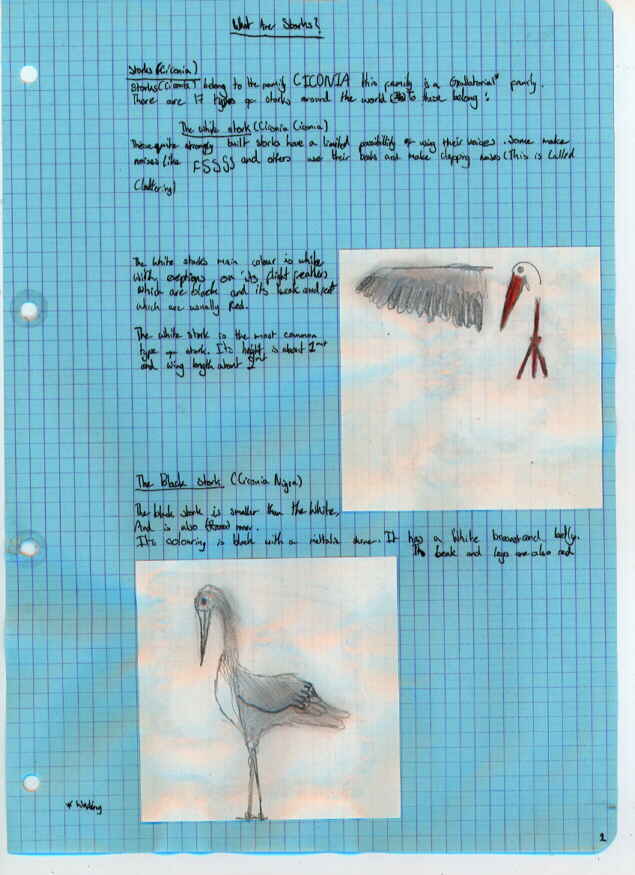 What Are Storks?
Storks (Ciconia)
Storks (Ciconia) belong to the family CICONIA this family is a Grallatorial* family.
There are 17 types of storks around the world to these belong:
The White stork (Ciconia Ciconia)
These quite strongly built storks have a limited possibility of using their voices. Some make
noises like FSSSS and others use their beaks and make clapping noises (This is called
Clattering)
The White storks main colour is white
With exeptions on its flight feathers
Which are black and its beak and feet
which are usually Red.
The white stork is the most common
type of stork. Its height is about 1mt
and wing length about 2mt
The Black stork (Ciconia Nigra)
The black stork is smaller than the White,
And is also
Its colouring is black with a shine. It has a White breast and belly.
beak and legs are also red
* Wading
1